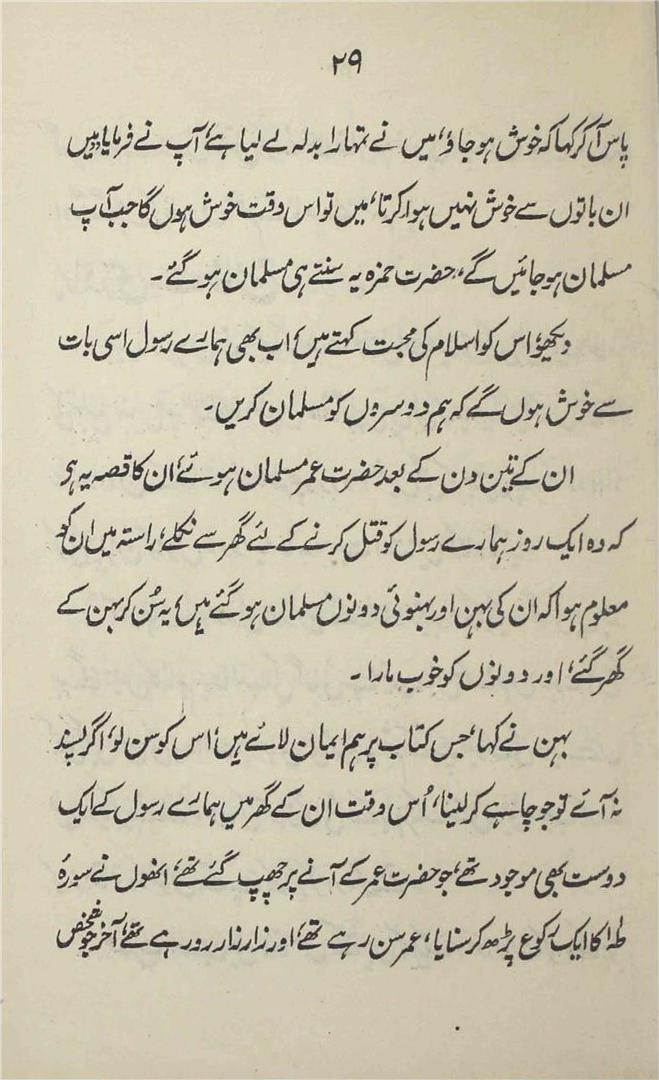 ۲۹
پاس آ کر کہا کہ خوش ہو جاؤ، میں نے تمہارا بدلہ لے لیا ہے، آپ نے فرمایا، میں
ان باتوں سے خوش نہیں ہوا کرتا، میں تو اس وقت خوش ہوں گا جب آپ
مسلمان ہو جائیں گے، حضرت حمزہ یہ سنتے ہی مسلمان ہو گئے۔
دیکھو، اس کو اسلام کی محبت کہتے ہیں، اب بھی ہمارے رسول اسی بات
سے خوش ہوں گے کہ ہم دوسروں کو مسلمان کریں۔
ان کے تین دن کے بعد حضرت عمر مسلمان ہوئے، ان کا قصہ یہ ہی
کہ وہ ایک روز ہمارے رسول کو قتل کرنے کے لئے گھر سے نکلے، راستہ میں ان کو
معلوم ہوا کہ ان کی بہن اور بہنوئی دونوں مسلمان ہو گئے ہیں، یہ سُن کر بہن کے
گھر گئے، اور دونوں کو خوب مارا۔
بہن نے کہا، جس کتاب پر ہم ایمان لائے ہیں، اس کو سن لو، اگر پسند
نہ آئے تو جو چاہے کر لینا، اُس وقت ان کے گھر میں ہمارے رسول کے ایک
دوست بھی موجود تھے، جو حضرت عمر کے آنے پر چھپ گئے تھے، انھوں نے سورۂ
طہٰ کا ایک رکوع پڑھ کر سنایا، عمر سن رہے تھے، اور زار زار رو رہے تھے، آخر جو شخص